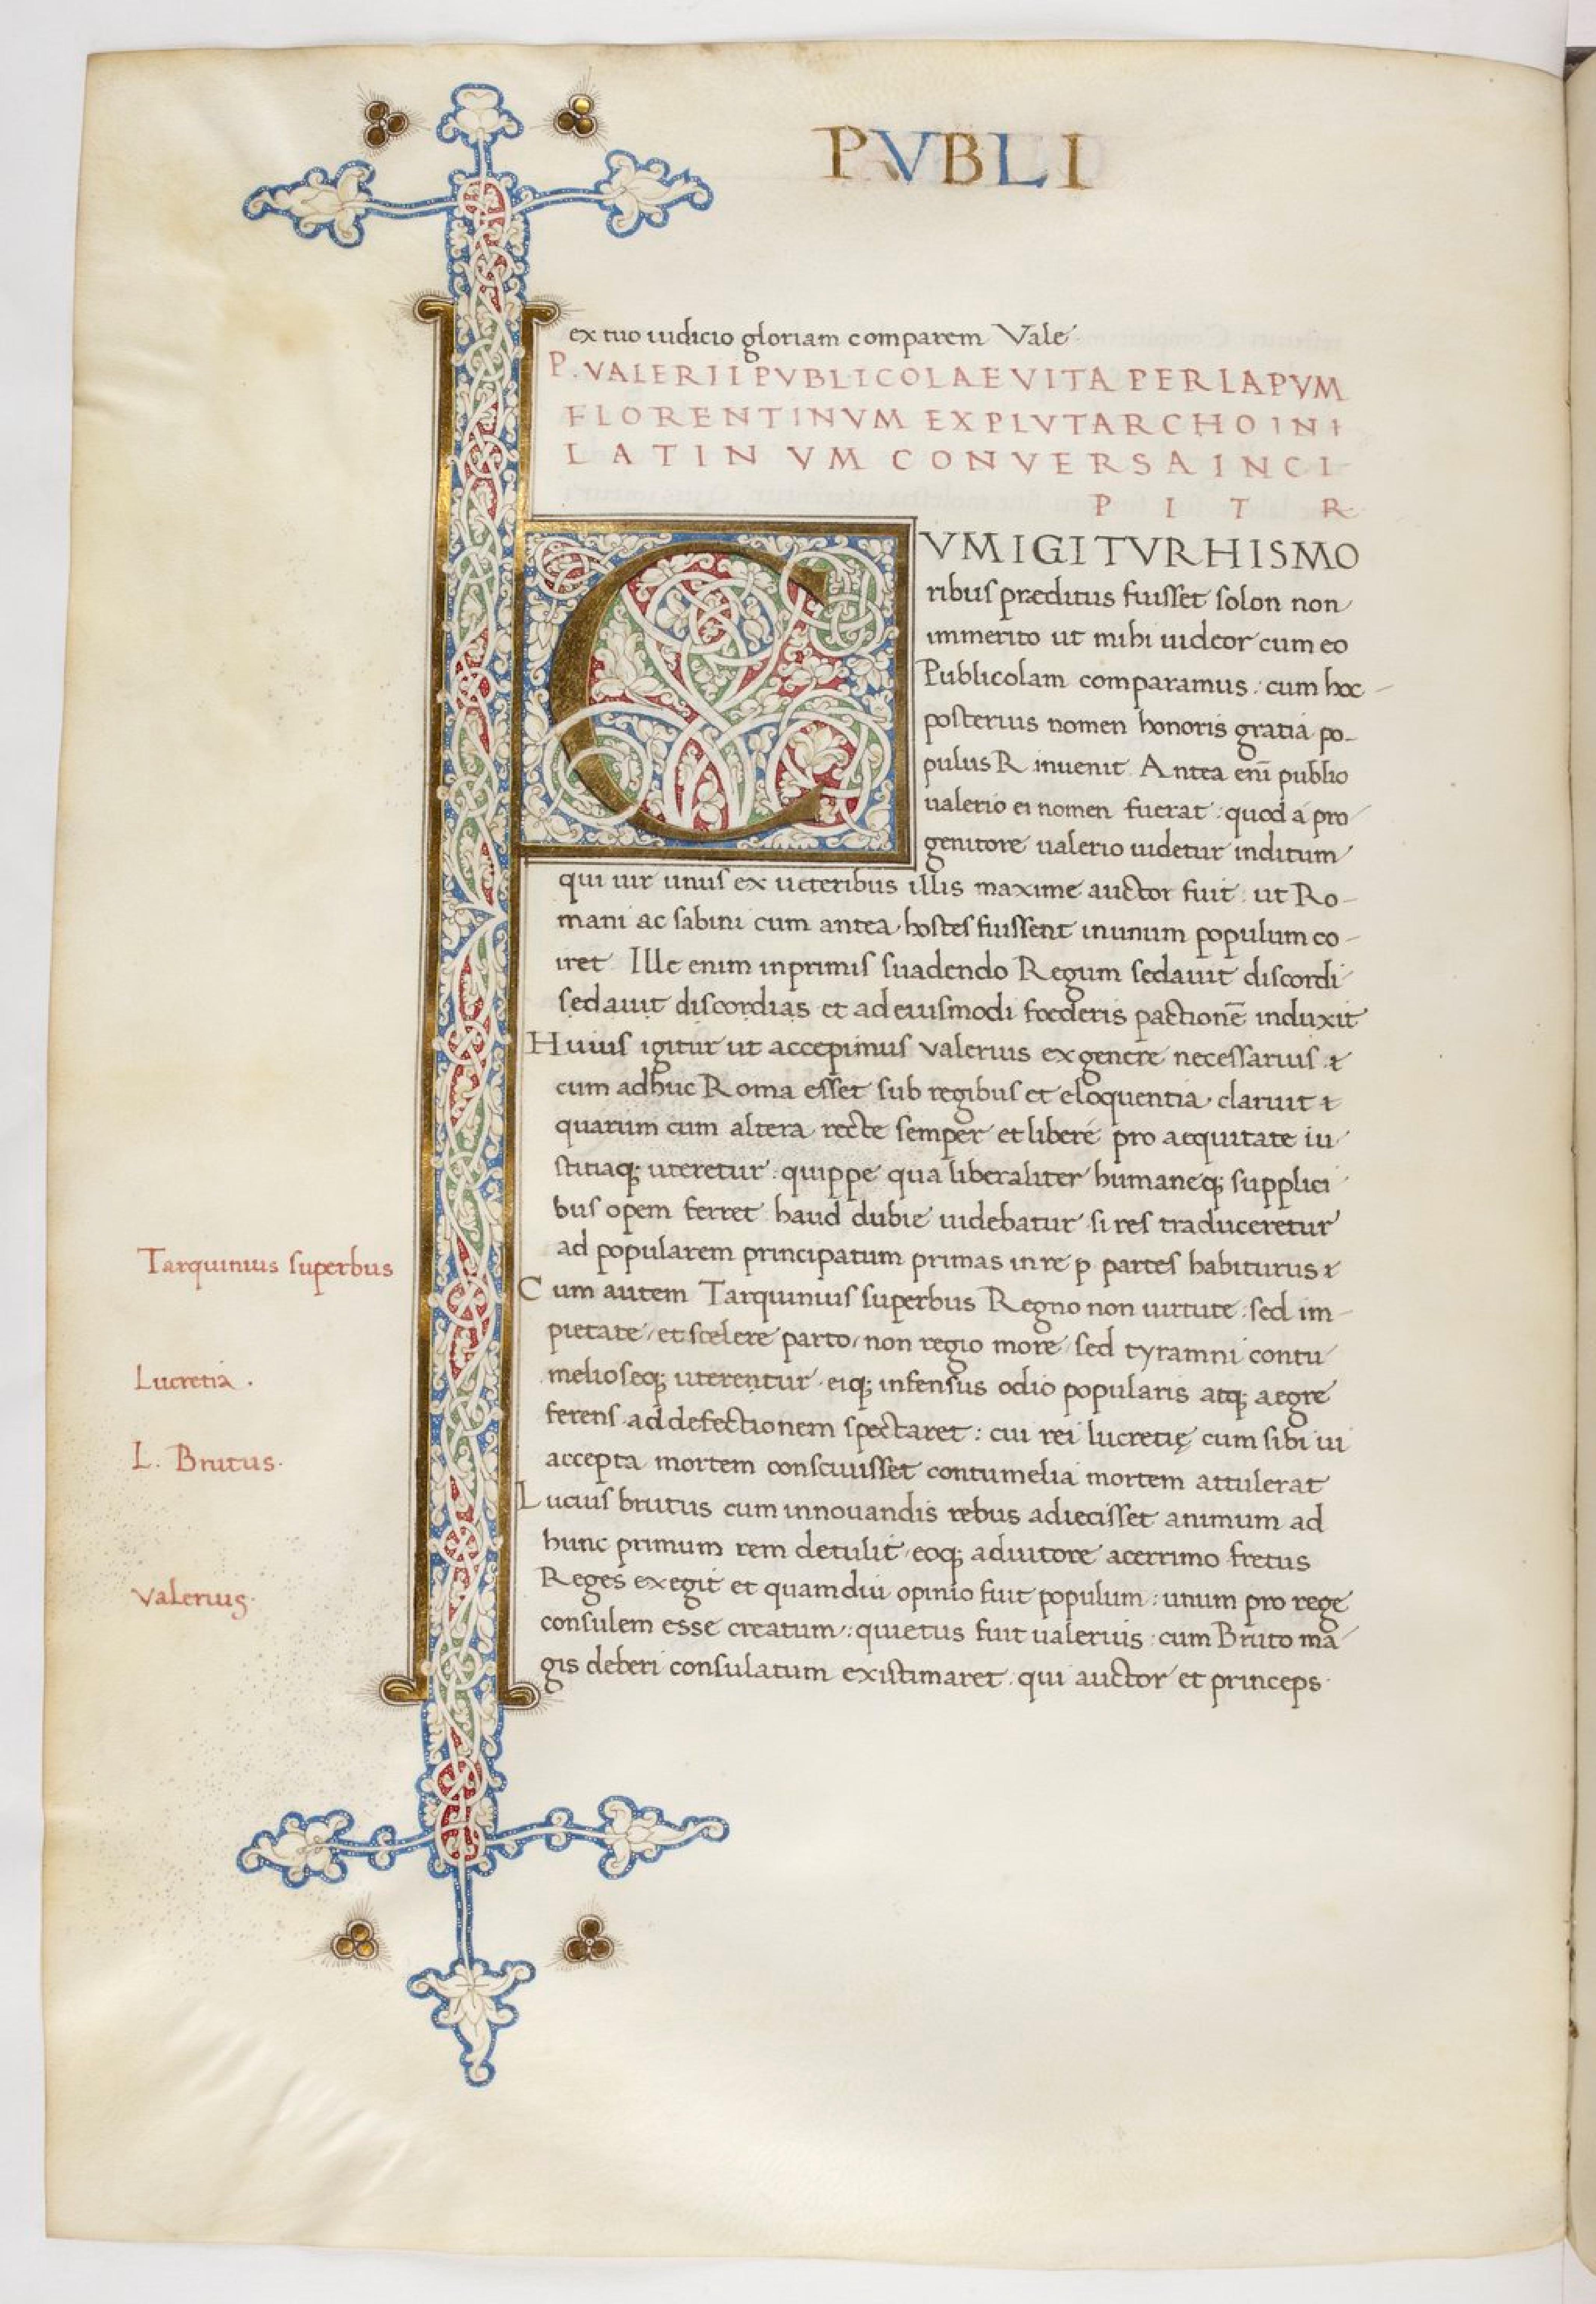 PVBLI
ex tuo iudicio gloriam comparem Vale
P. VALERII PVBLICOLAE VITA PER LAPVM
FLORENTINVM EX PLVTARCHO INI
LATINVM CONVERSA INCI
PIT R
CVM IGITVR HIS MO
ribus præditus fuisset solon non
immerito ut mihi uideor cum eo
Publicolam comparamus: cum hoc
posterius nomen honoris gratia po-
pulus R inuenit. Antea eni publio
ualerio ei nomen fuerat: quod a pro
genitore ualerio uidetur inditum
qui uir unus ex ueteribus illis maxime auctor fuit: ut Ro-
mani ac sabini cum antea hostes fuissent in unum populum co-
iret Ille enim inprimis suadendo Regum sedauit discordi
sedauit discordias et ad eiusmodi foederis pactionē induxit
Huius igitur ut accepimus valerius ex genere necessarius &
cum adhuc Roma esset sub regibus et eloquentia claruit &
quarum cum altera recte semper et libere pro aequitate iu
stitiaq; uteretur: quippe qua liberaliter humaneq; supplici
bus opem ferret haud dubie uidebatur si res traduceretur
ad popularem principatum primas in re p partes habiturus &
Tarquinius superbus
Cum autem Tarquinius superbus Regno non uirtute: sed im-
pietate et scelere parto, non regio more sed tyramni contu
Lucretia.
melioseq; uterentur eiq; infensus odio popularis atq; aegre
ferens ad defectionem spectaret: cui rei lucretię cum sibi ui
L. Brutus.
accepta mortem consciuisset contumelia mortem attulerat
Lucius brutus cum innouandis rebus adiecisset animum ad
hunc primum rem detulit eoq; adiutore acerrimo fretus
Valerius.
Reges exegit et quamdiu opinio fuit populum: unum pro rege
consulem esse creatum: quietus fuit ualerius: cum Bruto ma
gis deberi consulatum existimaret: qui auctor et princeps